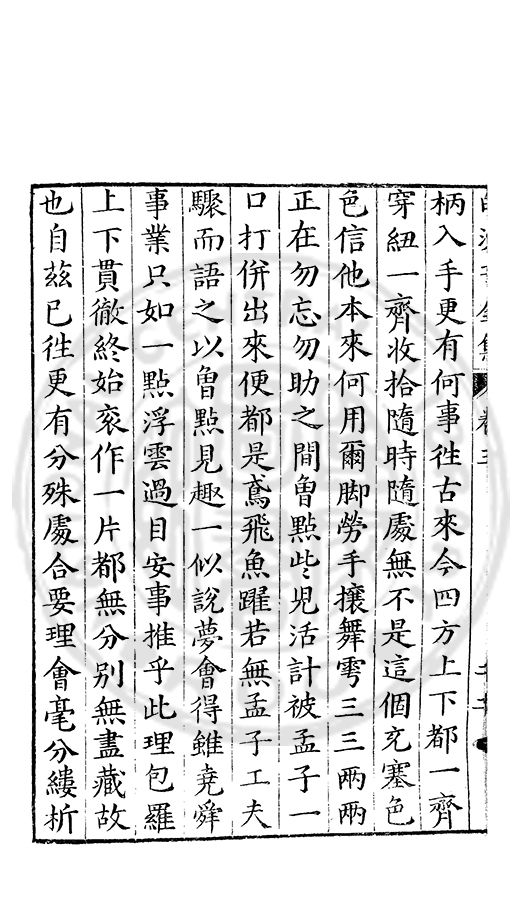 柄入手更有何事徃古來今四方上下都一齊
穿紐一齊收拾隨時隨處無不是這個充塞色
色信他本來何用爾脚勞手攘舞雩三三兩兩
正在勿忘勿助之間曾點些兒活計被孟子一
口打併出來便都是鳶飛魚躍若無孟子工夫
驟而語之以曾點見趣一似說夢會得雖堯舜
事業只如一點浮雲過目安事推乎此理包羅
上下貫徹終始衮作一片都無分別無盡藏故
也自兹已徃更有分殊處合要理會毫分縷析